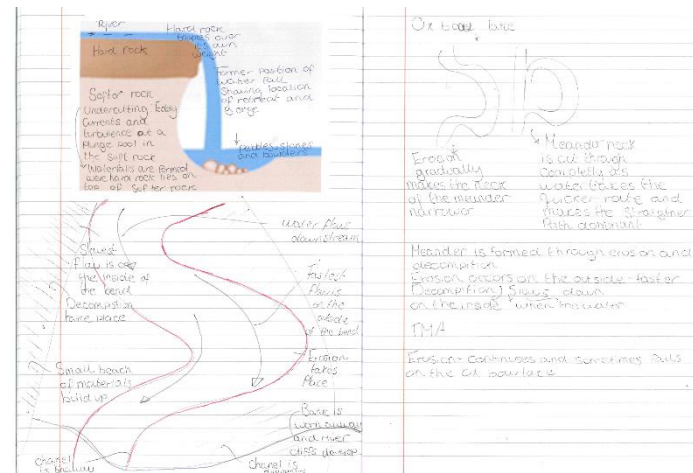 River
Hard rock
topples over
its own
weight
Hard rock
Former position of
water fall
Showing location
of retreat and
gorge
Softer rock
Undercutting Eddy
Currents and
turbulence at a
Plunge pool in
the soft rock
Materials are formed
were hard rock lies on
top of Softer rock
Pebbles stones
and boulders
water flow
downstream
Slowest
flow is on
the inside of
the bend
Decomposition
take place
fastest
flow is
on the
outside
of the bend
Small beach
of materials
build up
Erosion
takes
Place
Bank is
worn away
and river
cliffs develop
chanel
is shallow
chanel is
Ox lake
Erosion
gradually
makes the neck
of the meander
narrower
Meander neck
is cut through
completely as
water takes the
quicker route and
makes the straighter
Path dominant
Meander is formed through erosion and
Erosion occurs on the outside - faster
down
on the inside when the water
Erosion - Continues and sometimes
on the